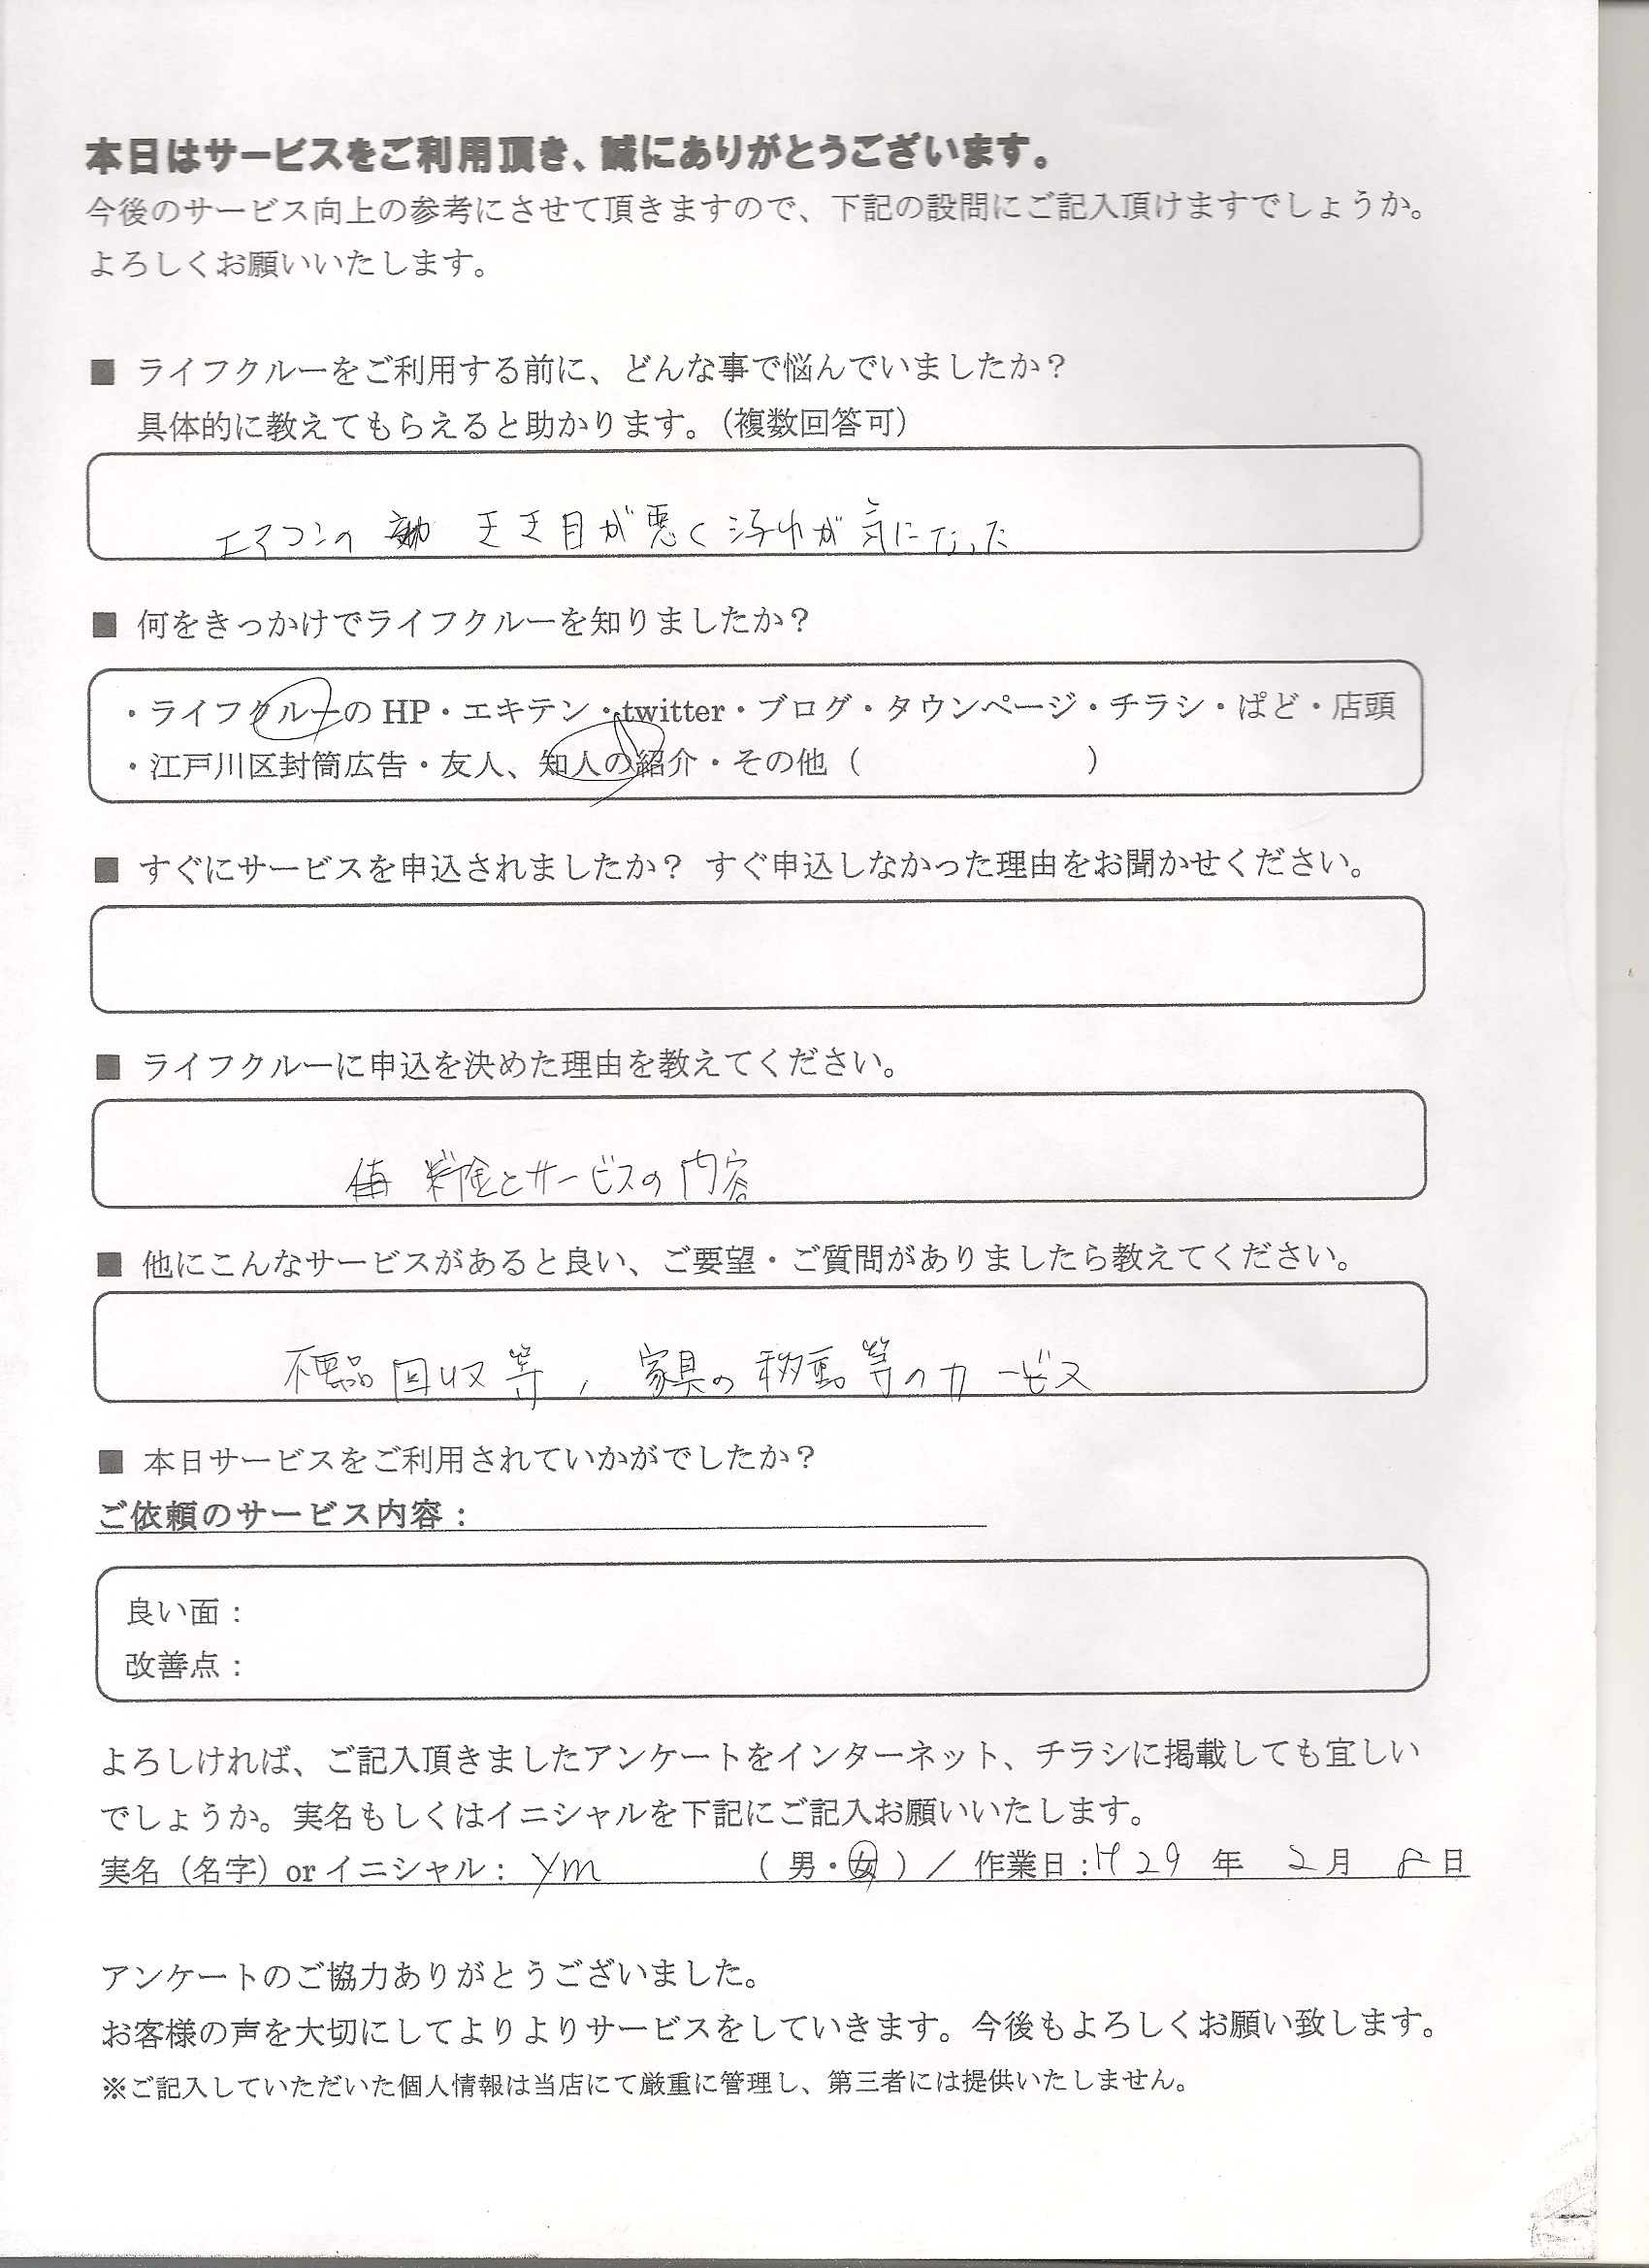 本日はサービスをご利用頂き、誠にありがとうございます。
今後のサービス向上の参考にさせて頂きますので、下記の設問にご記入頂けますでしょうか。
よろしくお願いいたします。
■ ライフクルーをご利用する前に、どんな事で悩んでいましたか？
具体的に教えてもらえると助かります。（複数回答可）
エアコンの きき目が悪く 汚れが 気になった
■ 何をきっかけでライフクルーを知りましたか？
・ライフクルーの HP・エキテン・twitter・ブログ・タウンページ・チラシ・ぱど・店頭
・江戸川区封筒広告・友人、知人の紹介・その他（ ）
■ すぐにサービスを申込されましたか？ すぐ申込しなかった理由をお聞かせください。
■ ライフクルーに申込を決めた理由を教えてください。
料金とサービスの内容
■ 他にこんなサービスがあると良い、ご要望・ご質問がありましたら教えてください。
不要品 回収 等 、 家具の 移動 等の サービス
■ 本日サービスをご利用されていかがでしたか？
ご依頼のサービス内容：
良い面：
改善点：
よろしければ、ご記入頂きましたアンケートをインターネット、チラシに掲載しても宜しい
でしょうか。実名もしくはイニシャルを下記にご記入お願いいたします。
実名（名字）or イニシャル： YM （ 男・女 ）／ 作業日：H29 年 2月 8日
アンケートのご協力ありがとうございました。
お客様の声を大切にしてよりよりサービスをしていきます。今後もよろしくお願い致します。
※ご記入していただいた個人情報は当店にて厳重に管理し、第三者には提供いたしません。